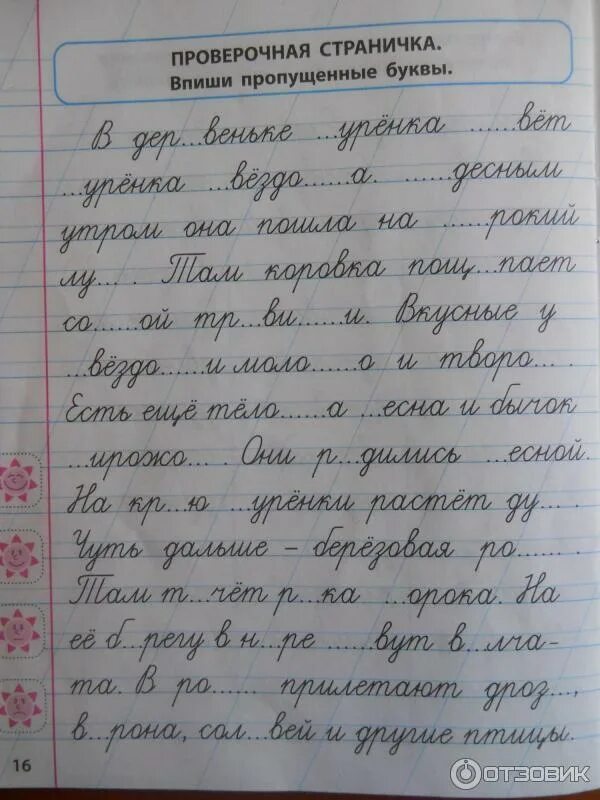 ПРОВЕРОЧНАЯ СТРАНИЧКА.
Впиши пропущенные буквы.
В дер...веньке ...урёнка ......вёт
...урёнка ...вёздо......а. ......десным
утром она пошла на ......рокий
лу... . Там коровка пощ...пает
со......ой тр...ви......и. Вкусные у
...вёздо......и моло......о и творо... .
Есть ещё тёло......а ...есна и бычок
...ирожо... . Они р...дились ...есной.
На кр...ю ...урёнки растёт ду... .
Чуть дальше – берёзовая ро...... .
Там т...чёт р...ка ...орока. На
её б...регу в н...ре ......вут в...лча-
та. В ро...... прилетают дроз...,
в...рона, сол...вей и другие птицы.
16
ОТЗОВИК